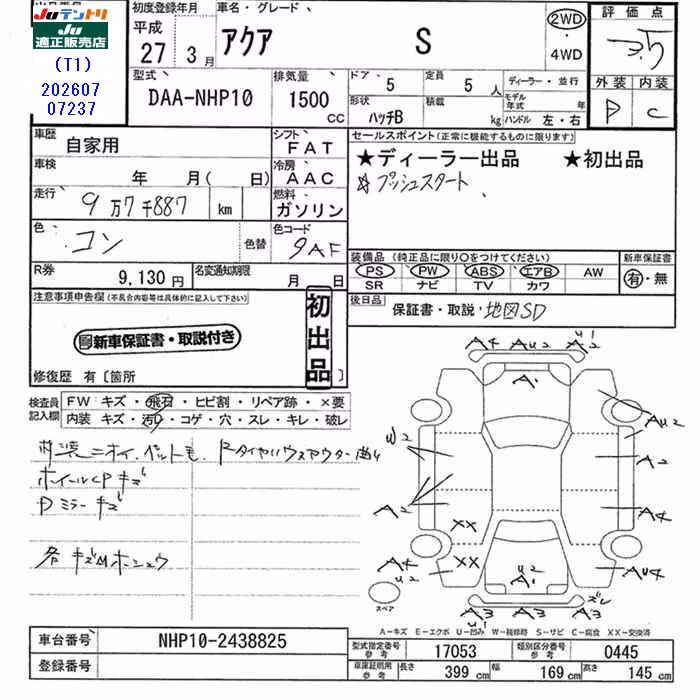 Juテントリ
JU
適正販売店
(T1)
202607
07237
初度登録年月
平成
27 3月
車名・グレード
アクア S
2WD
・
4WD
評価点
3.5
外装 内装
D C
型式
DAA-NHP10
排気量
1500
cc
ドア 5
定員 5 人
形状 ハッチB
積載 kg
ディーラー・並行
モデル年式 年
ハンドル 左・右
車歴 自家用
シフト FAT
車検 年 月( 日)
冷房 AAC
走行 9万7千887 km
燃料 ガソリン
色 コン
色替
色コード 9AF
R券 9,130円
名変通知期限 月 日
セールスポイント(正常に機能するものに限ります)
★ディーラー出品 ★初出品
☆プッシュスタート
装備品 (純正品に限り○をつけてください)
PS PW ABS エアB AW
SR ナビ TV カワ
新車保証書
有・無
後日品
保証書・取説・地図SD
注意事項申告欄(不具合内容等は具体的に記入して下さい)
初出品
新車保証書・取説付き
修復歴 有〔箇所 〕
検査員記入欄
FW キズ・飛石・ヒビ割・リペア跡・×要
内装 キズ・汚れ・コゲ・穴・スレ・キレ・破レ
内装ニオイ、ペット毛
ホイールCPキズ
Dミラーキズ
各キズAMホシュウ
A4 AU2 U1
A2
A1
AU2
U2
A2
A2
A4
XX
XX
A4
U2
U2
A1
AU4
ズレ
A3 A3 A3
スペア
A-キズ E-エクボ U-凹み W-補修跡 S-サビ C-腐食 XX-交換済
車台番号 NHP10-2438825
登録番号
型式指定番号 参考 17053
類別区分番号 参考 0445
車庫証明用 参考 長さ 399 cm 幅 169 cm 高さ 145 cm